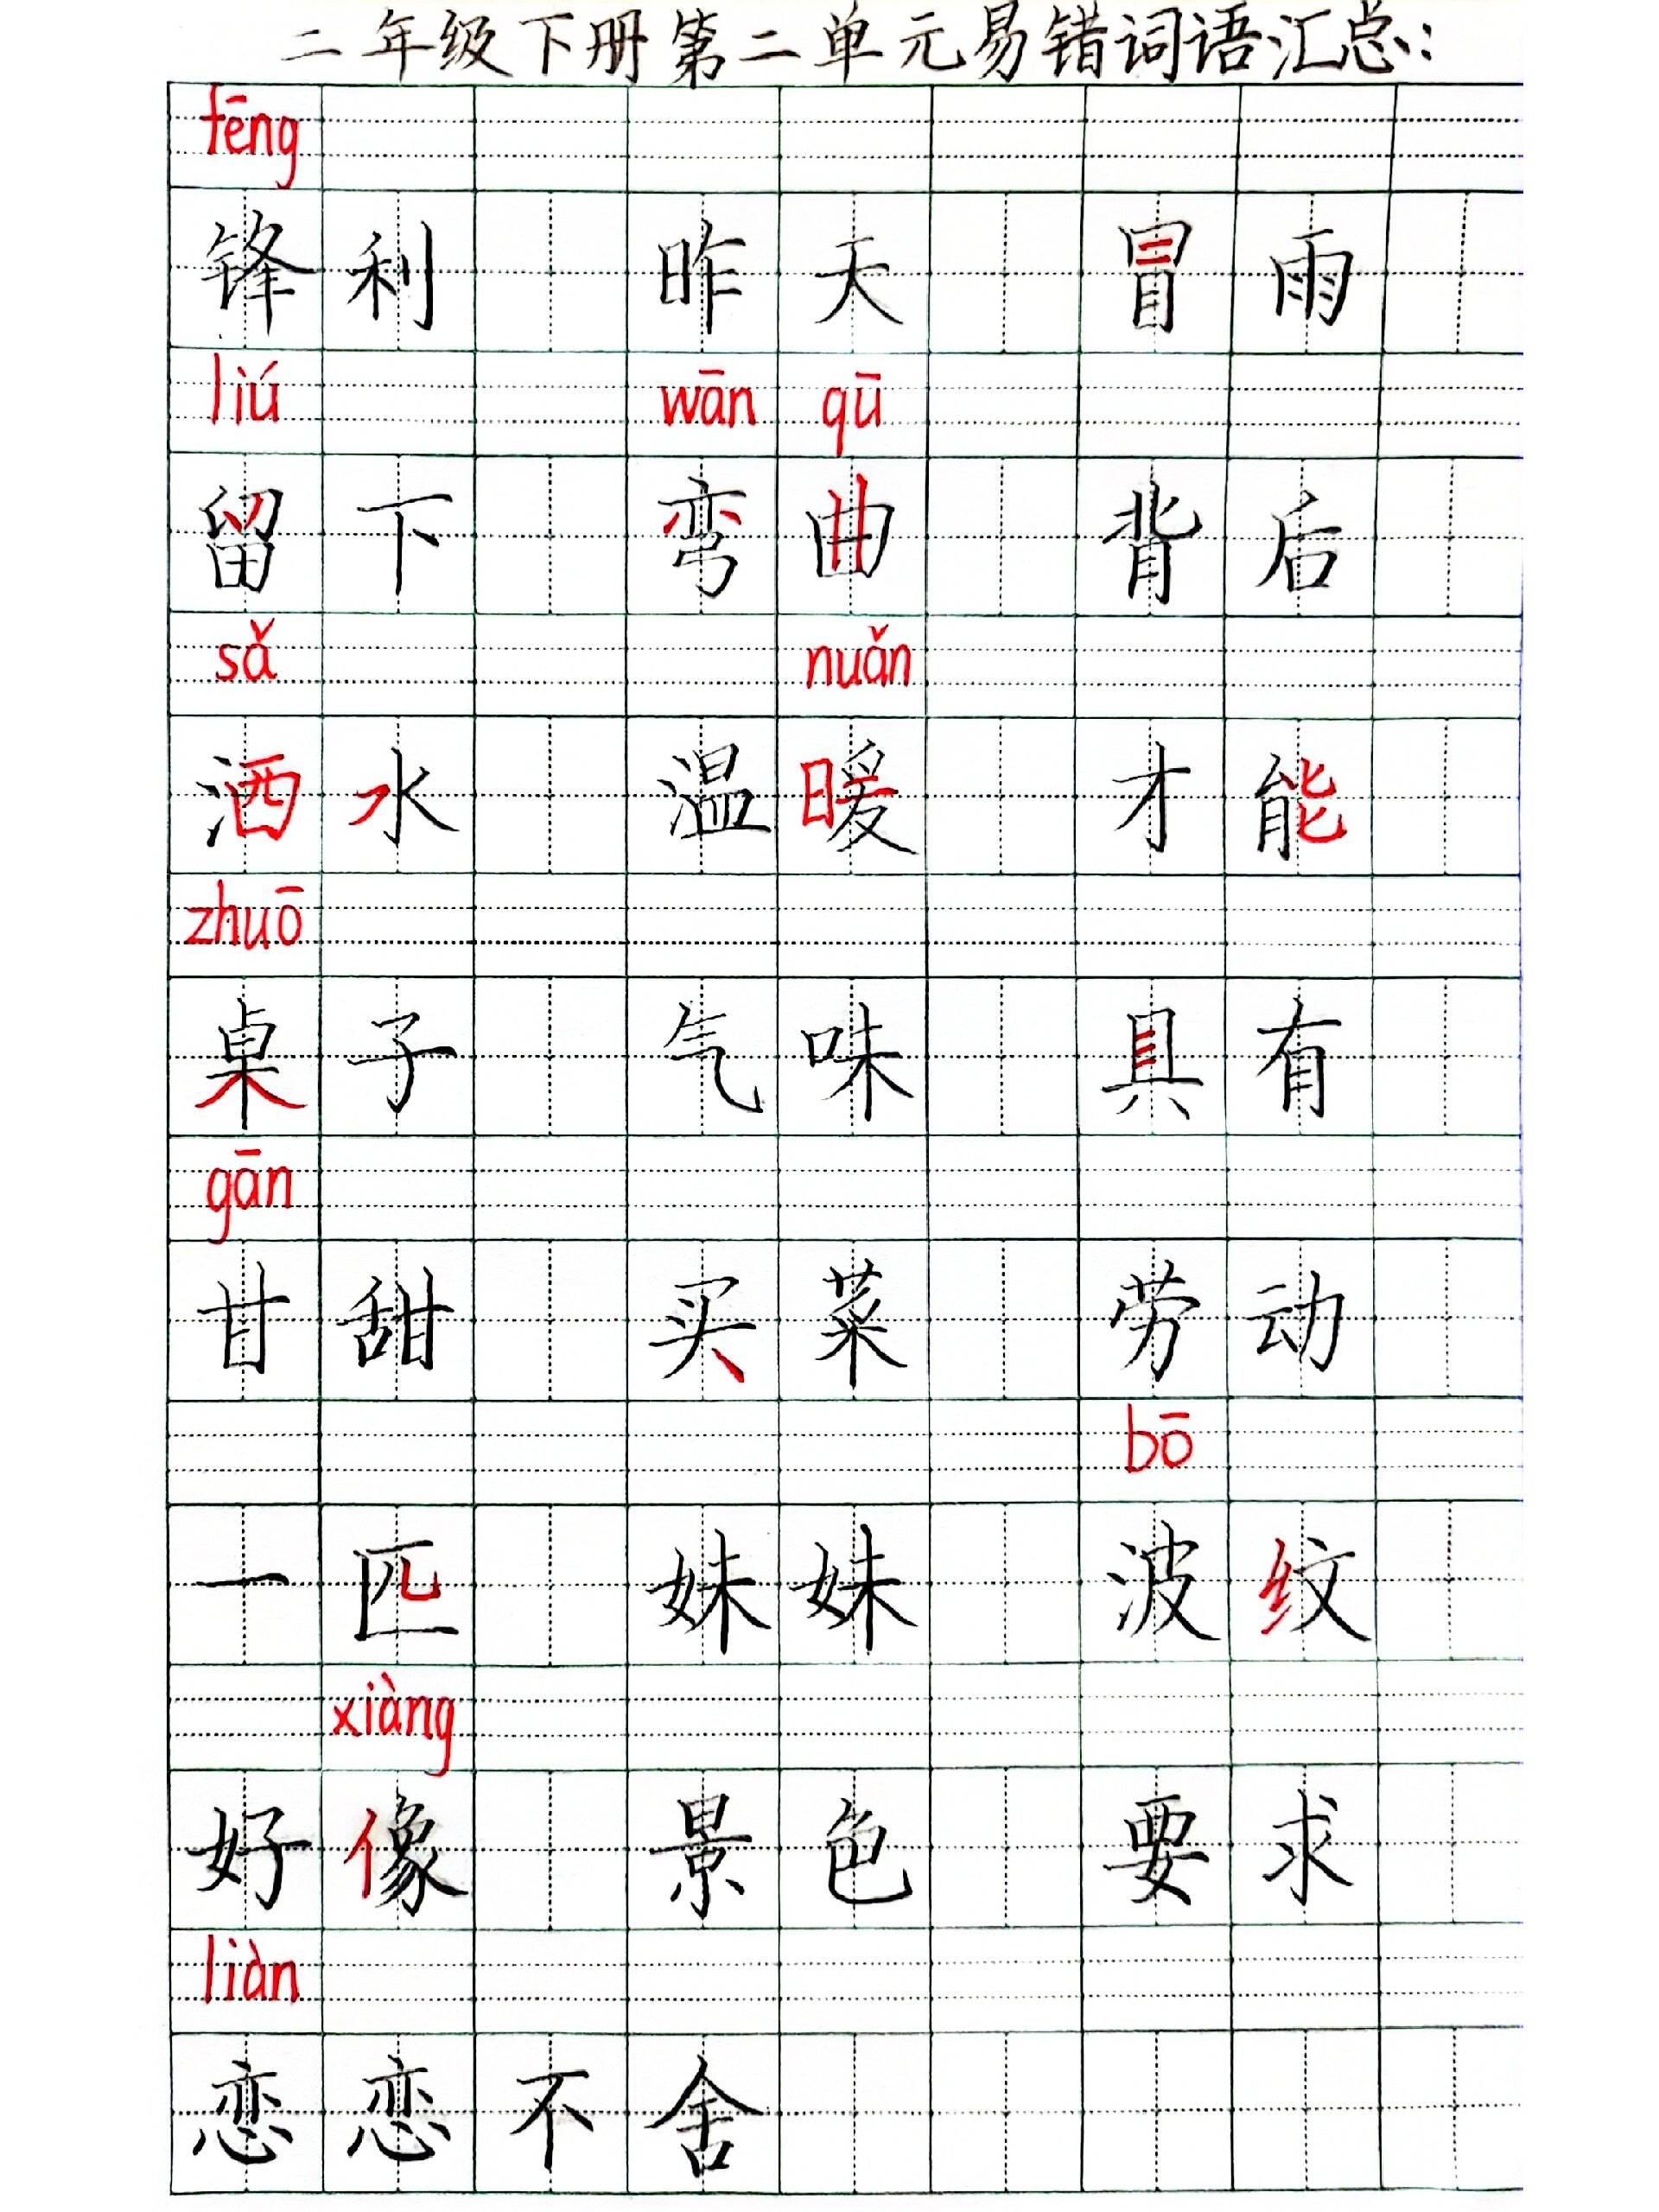 二年级下册第二单元易错词语汇总:
fēng
锋利 昨天 冒雨
liú wān qū
留下 弯曲 背后
sǎ nuǎn
洒水 温暖 才能
zhuō
桌子 气味 具有
gān
甘甜 买菜 劳动
bō
一匹 妹妹 波纹
xiàng
好像 景色 要求
liàn
恋恋不舍